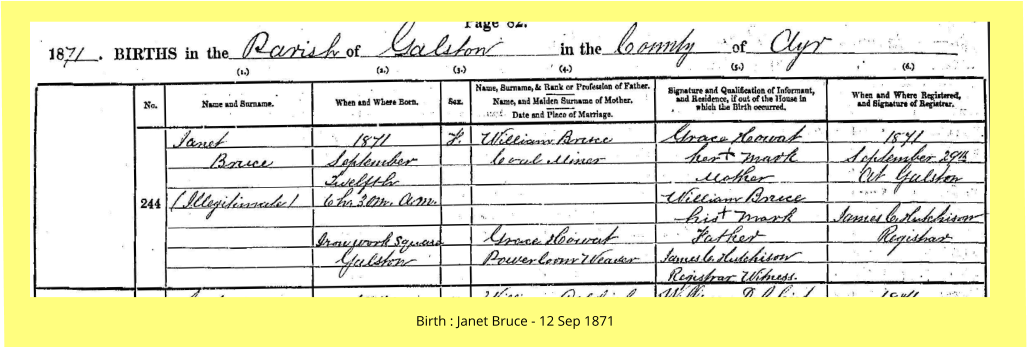 Page 82.
1871. BIRTHS in the Parish of Galston in the County of Ayr
(1.) (2.) (3.) (4.) (5.) (6.)
No.
Name and Surname.
When and Where Born.
Sex.
Name, Surname, & Rank or Profession of Father.
Name, and Maiden Surname of Mother.
Date and Place of Marriage.
Signature and Qualification of Informant,
and Residence, if out of the House in
which the Birth occurred.
When and Where Registered,
and Signature of Registrar.
244
Janet
Bruce
(Illegitimate)
1871
September
Twelfth
6 hr. 30 m. A.M.
Ironwork Square
Galston
F.
William Bruce
Coal Miner
Grace Howat
Powerloom Weaver
Grace Howat
her + mark
Mother
William Bruce
his + mark
Father
James C. Hutchison
Registrar Witness.
1871
September 29th
At Galston
James C. Hutchison
Registrar
Birth : Janet Bruce - 12 Sep 1871